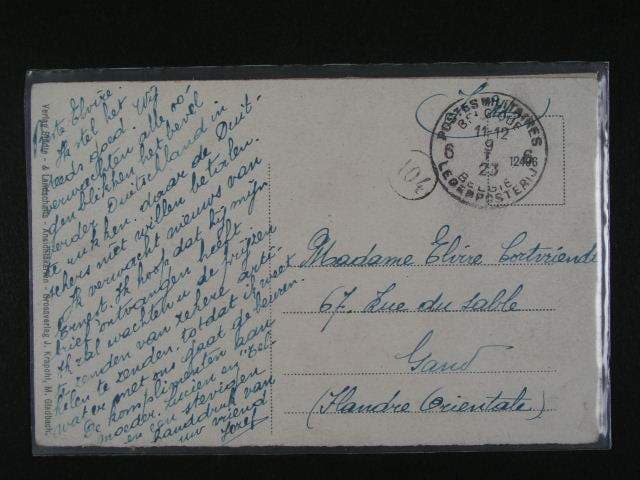 Beste Elvire.
Ik stel het
steeds goed. Wij
verwachten alle oo-
genblikken het bevel
verder Duitschland in
te rukken. daar de Duit-
schers niet willen betalen.
Ik verwacht nieuws van
Ernest. Ik hoop dat hij mijn
brief ontvangen heeft.
Ik zal wachten u de prijzen
te zenden van zekere arti-
kelen te zenden. totdat ik weet
wat er met ons gaat gebeuren.
De komplimenten aan
moeder. Lucien en
en een stevigen
handdruk van
uw vriend
Jozef
104
POSTES MILITAIRES
BELGIQUE
11-12
9
I
23
6 6
BELGIE
LEGERPOSTERIJ
12496
Madame Elvire Cortvriendt
67. Rue du Sable
Gand
(Flandre Orientale)
Verlag J. Krapohl, M. Gladbach.